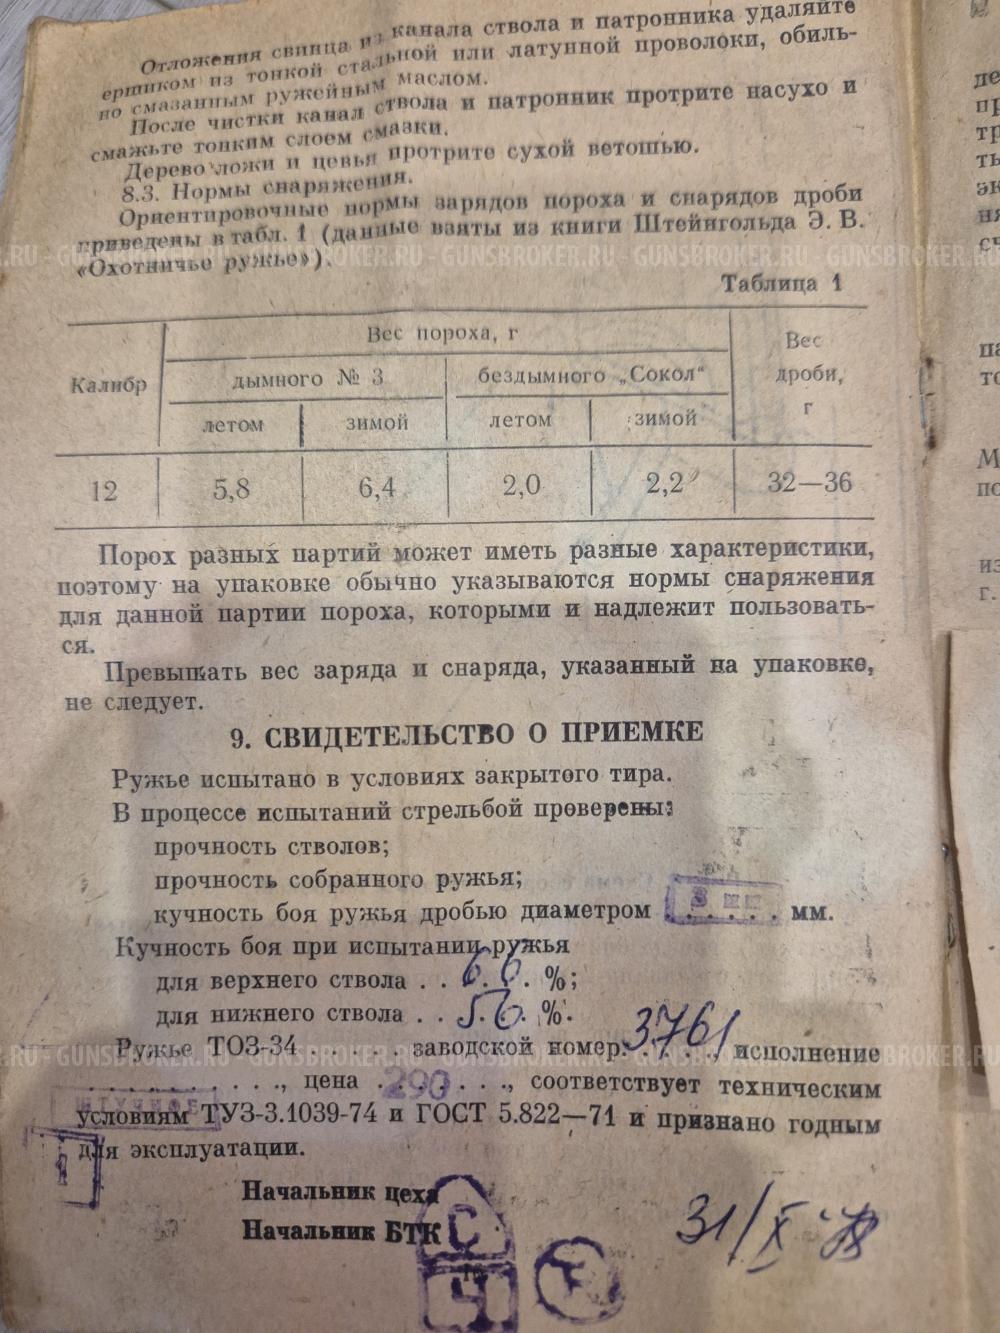 Отложения свинца из канала ствола и патронника удаляйте
ершиком из тонкой стальной или латунной проволоки, обиль-
но смазанным ружейным маслом.
После чистки канал ствола и патронник протрите насухо и
смажьте тонким слоем смазки.
Дерево ложи и цевья протрите сухой ветошью.
8.3. Нормы снаряжения.
Ориентировочные нормы зарядов пороха и снарядов дроби
приведены в табл. 1 (данные взяты из книги Штейнгольда Э. В.
«Охотничье ружье»).
GUNSBROKER.RU - GUNSBROKER.RU - GUNSBROKER.RU
Таблица 1
Калибр
Вес пороха, г
Вес дроби, г
дымного № 3
бездымного „Сокол“
летом зимой летом зимой
12 5,8 6,4 2,0 2,2 32—36
Порох разных партий может иметь разные характеристики,
поэтому на упаковке обычно указываются нормы снаряжения
для данной партии пороха, которыми и надлежит пользовать-
ся.
Превышать вес заряда и снаряда, указанный на упаковке,
не следует.
9. СВИДЕТЕЛЬСТВО О ПРИЕМКЕ
Ружье испытано в условиях закрытого тира.
В процессе испытаний стрельбой проверены:
прочность стволов;
прочность собранного ружья;
кучность боя ружья дробью диаметром 3 . . . . . мм.
Кучность боя при испытании ружья
для верхнего ствола . . 66 %;
для нижнего ствола . . 56 %.
Ружье ТОЗ-34 . . . . . заводской номер 3761, исполнение
GUNSBROKER.RU - GUNSBROKER.RU - GUNSBROKER.RU
. . . . . . . . . ., цена 290, соответствует техническим
ШТУЧНОЕ
условиям ТУЗ-3.1039-74 и ГОСТ 5.822—71 и признано годным
для эксплуатации.
Начальник цеха
Начальник БТК
31/X